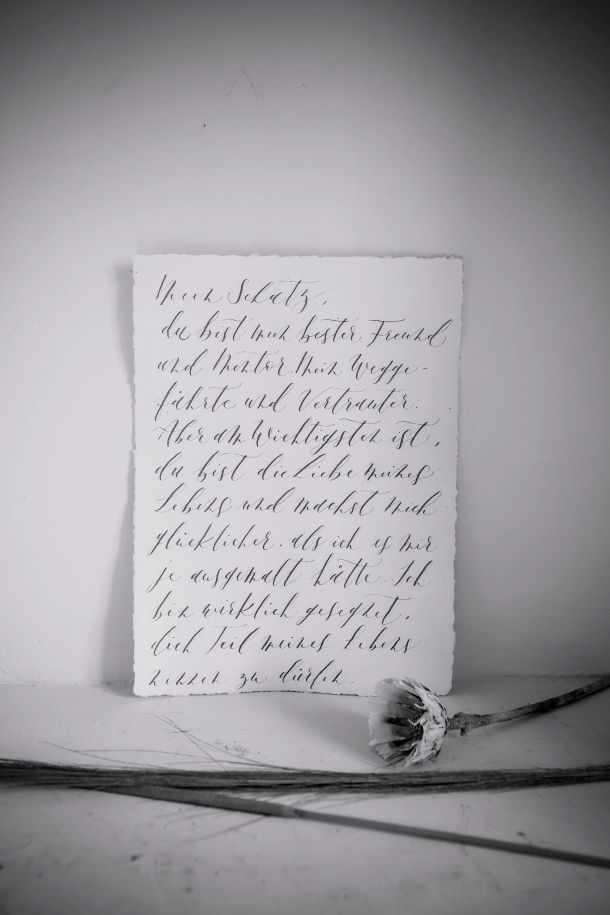 Mein Schatz,
du bist mein bester Freund
und Mentor. Mein Wegge-
fährte und Vertrauter.
Aber am Wichtigsten ist,
du bist die Liebe meines
Lebens und machst mich
glücklicher, als ich es mir
je ausgemalt hätte. Ich
bin wirklich gesegnet,
dich Teil meines Lebens
nennen zu dürfen.